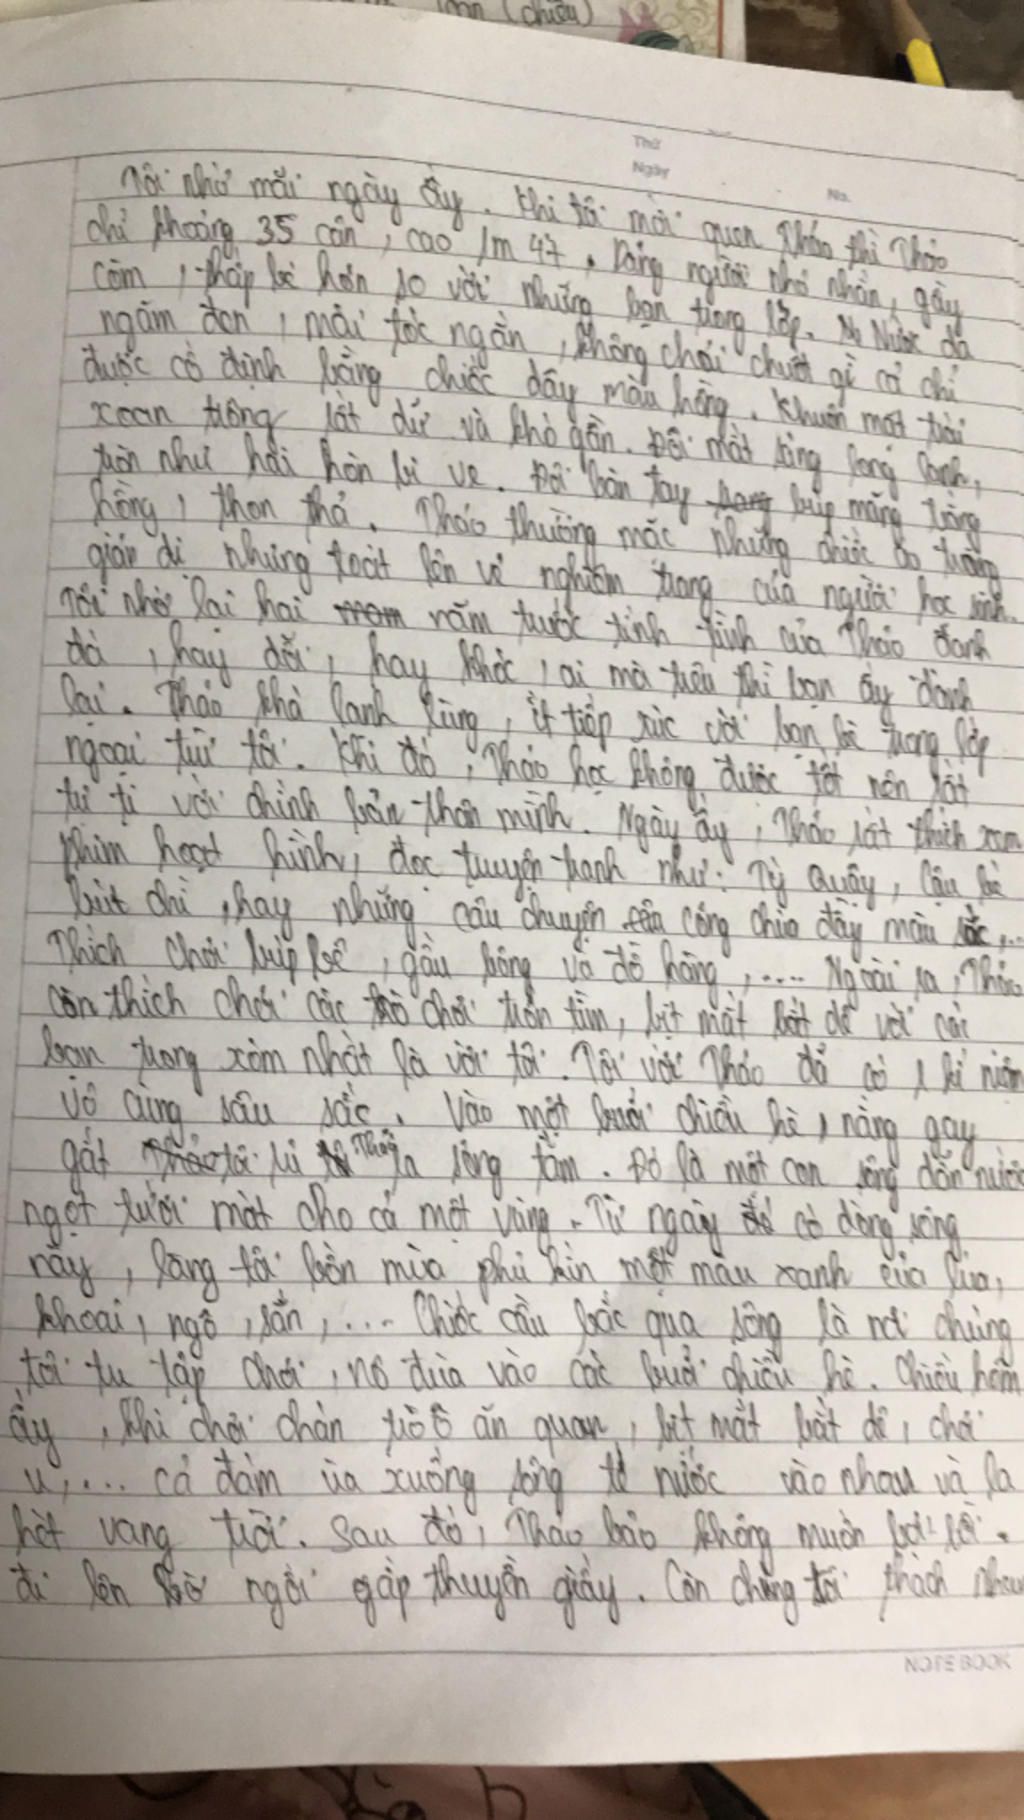 Toán (chiều)
Thứ
Ngày
No.
Tôi nhớ mãi ngày ấy. Khi tôi mới quen Thảo thì Thảo
chỉ khoảng 35 cân, cao 1m 47. Dáng người nhỏ nhắn, gầy
còm, thấp bé hơn so với những bạn trong lớp. Nước da
ngăm đen, mái tóc ngắn, không chải chuốt gì cả chỉ
được cố định bằng chiếc dây màu hồng. Khuôn mặt trái
xoan trông rất dữ và khó gần. Đôi mắt sáng long lanh,
tròn như hai hòn bi ve. Đôi bàn tay búp măng trắng
hồng, thon thả. Thảo thường mặc những chiếc áo trắng
giản dị nhưng toát lên vẻ nghiêm trang của người học sinh.
Tôi nhớ lại hai năm trước tính tình của Thảo đanh
đá, hay dỗi, hay khóc, ai mà trêu thì bạn ấy đánh
lại. Thảo khá lạnh lùng, ít tiếp xúc với bạn bè trong lớp
ngoại trừ tôi. Khi đó, Thảo học không được tốt nên rất
tự ti với chính bản thân mình. Ngày ấy, Thảo rất thích xem
phim hoạt hình, đọc truyện tranh như: Tý Quậy, Cậu bé
bút chì, hay những câu chuyện của công chúa đầy màu sắc,...
Thích chơi búp bê, gấu bông và đồ hàng,.... Ngoài ra, Thảo
còn thích chơi các trò chơi trốn tìm, bịt mắt bắt dê với các
bạn trong xóm nhất là với tôi. Tôi với Thảo đã có 1 kỉ niệm
vô cùng sâu sắc. Vào một buổi chiều hè, nắng gay
gắt tôi rủ Thảo ra sông tắm. Đó là một con sông dẫn nước
ngọt tưới mát cho cả một vùng. Từ ngày có dòng sông
này, làng tôi bốn mùa phủ kín một màu xanh của lúa,
khoai, ngô, sắn,... Chiếc cầu bắc qua sông là nơi chúng
tôi tụ tập chơi, nô đùa vào các buổi chiều hè. Chiều hôm
ấy, khi chơi chán trò ô ăn quan, bịt mắt bắt dê, chơi
u,... cả đám ùa xuống sông té nước vào nhau và la
hét vang trời. Sau đó, Thảo bảo không muốn bơi rồi.
đi lên bờ ngồi gấp thuyền giấy. Còn chúng tôi thách nhau
NOTE BOOK